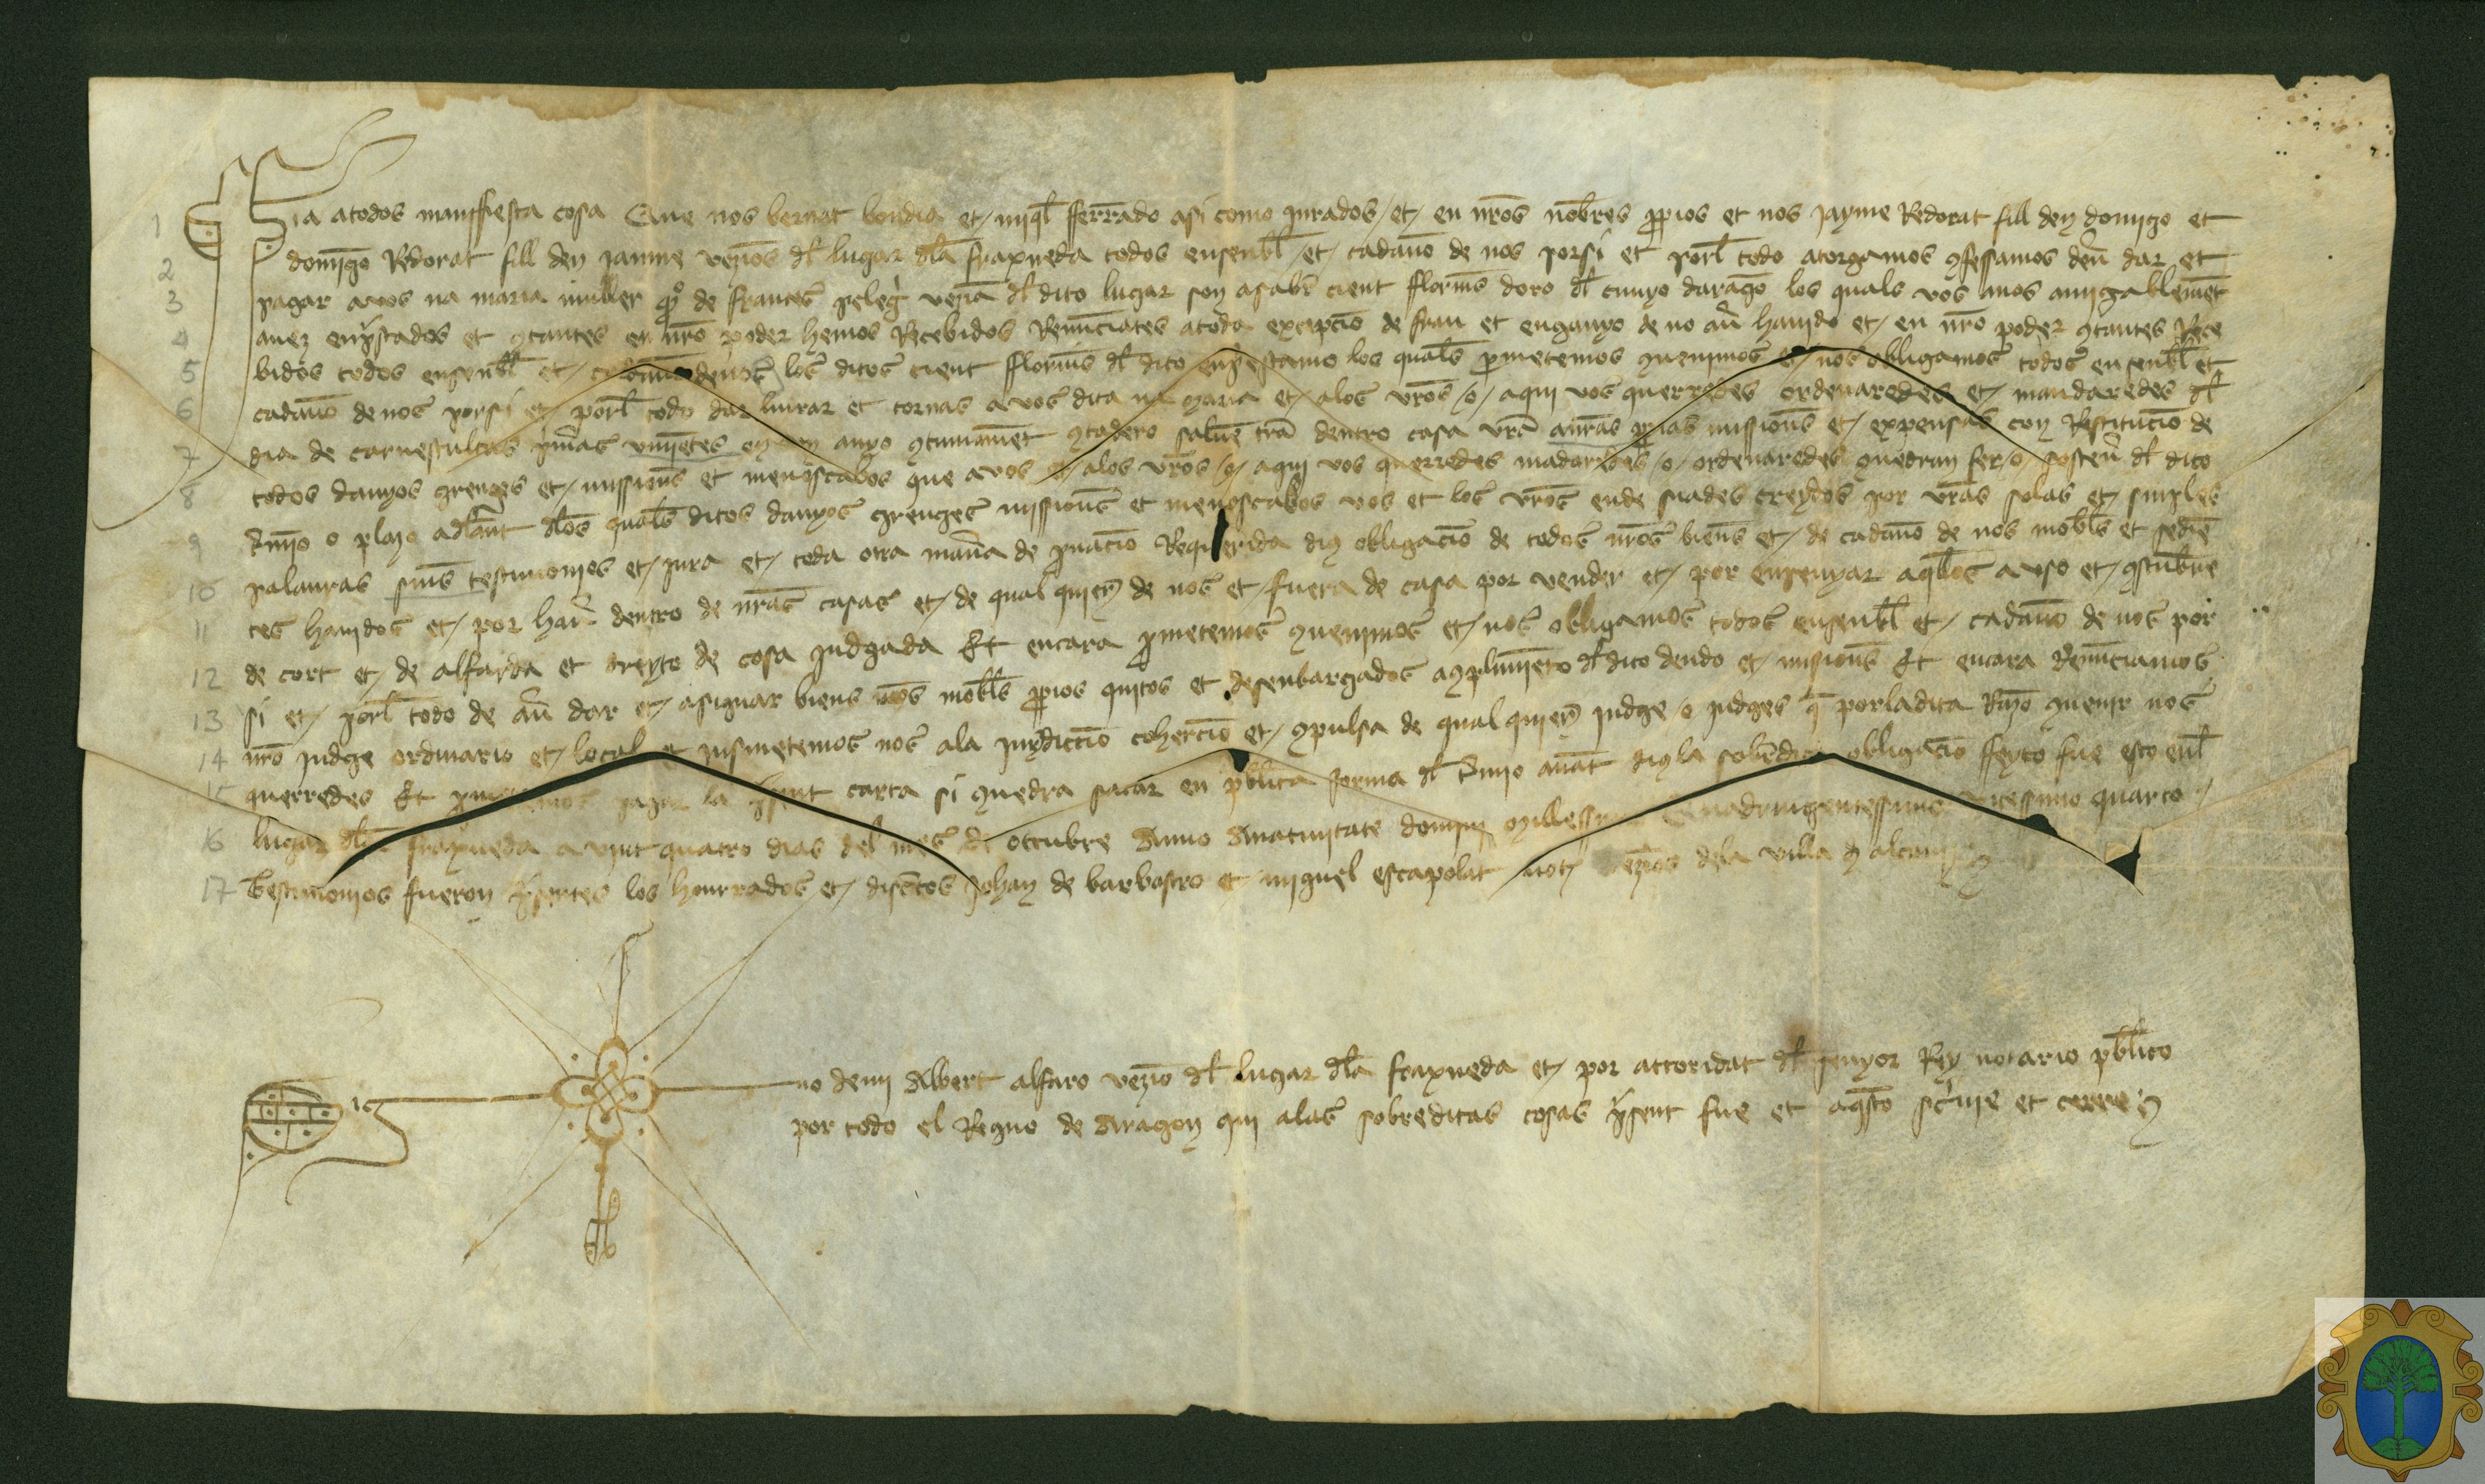 1 Sia atodos maniffiesta cosa Que nos bernat bondia et miq̄l fferrādo asi como jurados et en nr̄os nōbres p̄pios et nos Jayme Redorat fill den domīgo et
2 domīgo Redorat fill den jaume vezīos dl̄ lugar dl̄a fraxneda todos ensenbl̄ et cadaūo de nos porsi et porl̄ todo atorgamos 9fessamos deū dar et
3 pagar avos na maria muller q̄ de frances peleḡ vezīa dl̄ dito lugar son asab̄r cient fflorīns doro dl̄ cunyo daragō los quals vos anos amigablemēt
4 auez enp̄stados et 9tantes en nr̄o poder hemos Recebidos Renūciātes atoda excepciō de frau et enganyo de no aū hauido et en nr̄o poder 9tantes Rece
5 bidos todos ensenbl̄ et los ditos cient fflorīns dl̄ dito enp̄stamo los quals p̄metemos 9uenimos et nos obligamos todos ensenbl̄ et
6 cadaūo de nos porsi et porl̄ todo dar liurar et tornar avos dita na maria et alos vr̄os o aqui vos querredes ordenaredes et mandaredes dl̄
7 dia de carnestultas p̄meras viniētes en un anyo 9tinuamēt 9tadero saluē tr̄a dentro casa vr̄a anr̄as p̄pias missionīs et expensas con Restituciō de
8 todos danyos greuges et missionīs et menoscabos que avos o alos vr̄os o aqui vos querredes mādaredes o ordenaredes 9uedran fer o sosteū dl̄ dito
9 t̄mīo o plazo adl̄ānt dl̄os quals ditos danyos greuges missionīs et menoscabos vos et los vr̄os ende siades creydos por vr̄as solas et simples
10 palauras sinīs testimonios et jura et toda otra man̄a de p̄uaciō Requerida dius obligaciō de todos nr̄os bienīs et de cadaūo de nos mobl̄s et sediē
11 tes hauidos et por haū dentro de nr̄as casas et de qual quier de nos et fuera de casa por vender et por ensenyar aq̄llos avso et 9stūbre
12 de cort et de alfarda et treyto de cosa judgada Et encara p̄metemos 9uenimos et nos obligamos todos ensenbl̄ et cadaūo de nos por
13 si et porl̄ todo de aū dar et asignar biens nr̄os mobl̄s p̄pios quitos et desenbargados a9plimiēto dl̄ dito deudo et misionīs Et encara Renūciamos
14 nr̄o judge ordinario et local et jusmetemos nos ala juridictiō coherciō et 9pulsa de qual quier judge o judges q̄ porladita Razō 9uenir nos
15 querredes Et p̄metemos pagar la p̄sent carta si 9uedra sacar en pb̄lica forma dl̄ t̄mīo auāt dius la sobredita obligaciō ffeyto fue esto enl̄
16 lugar dl̄a fraxneda a vint quatro dias del mes de octubre Anno Anatiuitate domini millessimo Quadringentessimo vicessimo quarto
17 Testimonios fueron p̄sentes los honrrados et discretos johan de barbastro et miguel escapolat not vezīos dela villa d alcaniz
Sig
no demi Albert alfaro vezīo dl̄ lugar dl̄a fraxneda et por actoridat dl̄ senyor Rey notario pb̄lico
por todo el Regno de Aragon qui alas sobreditas cosas p̄sent fue et aq̄sto sc̄uie et cerre